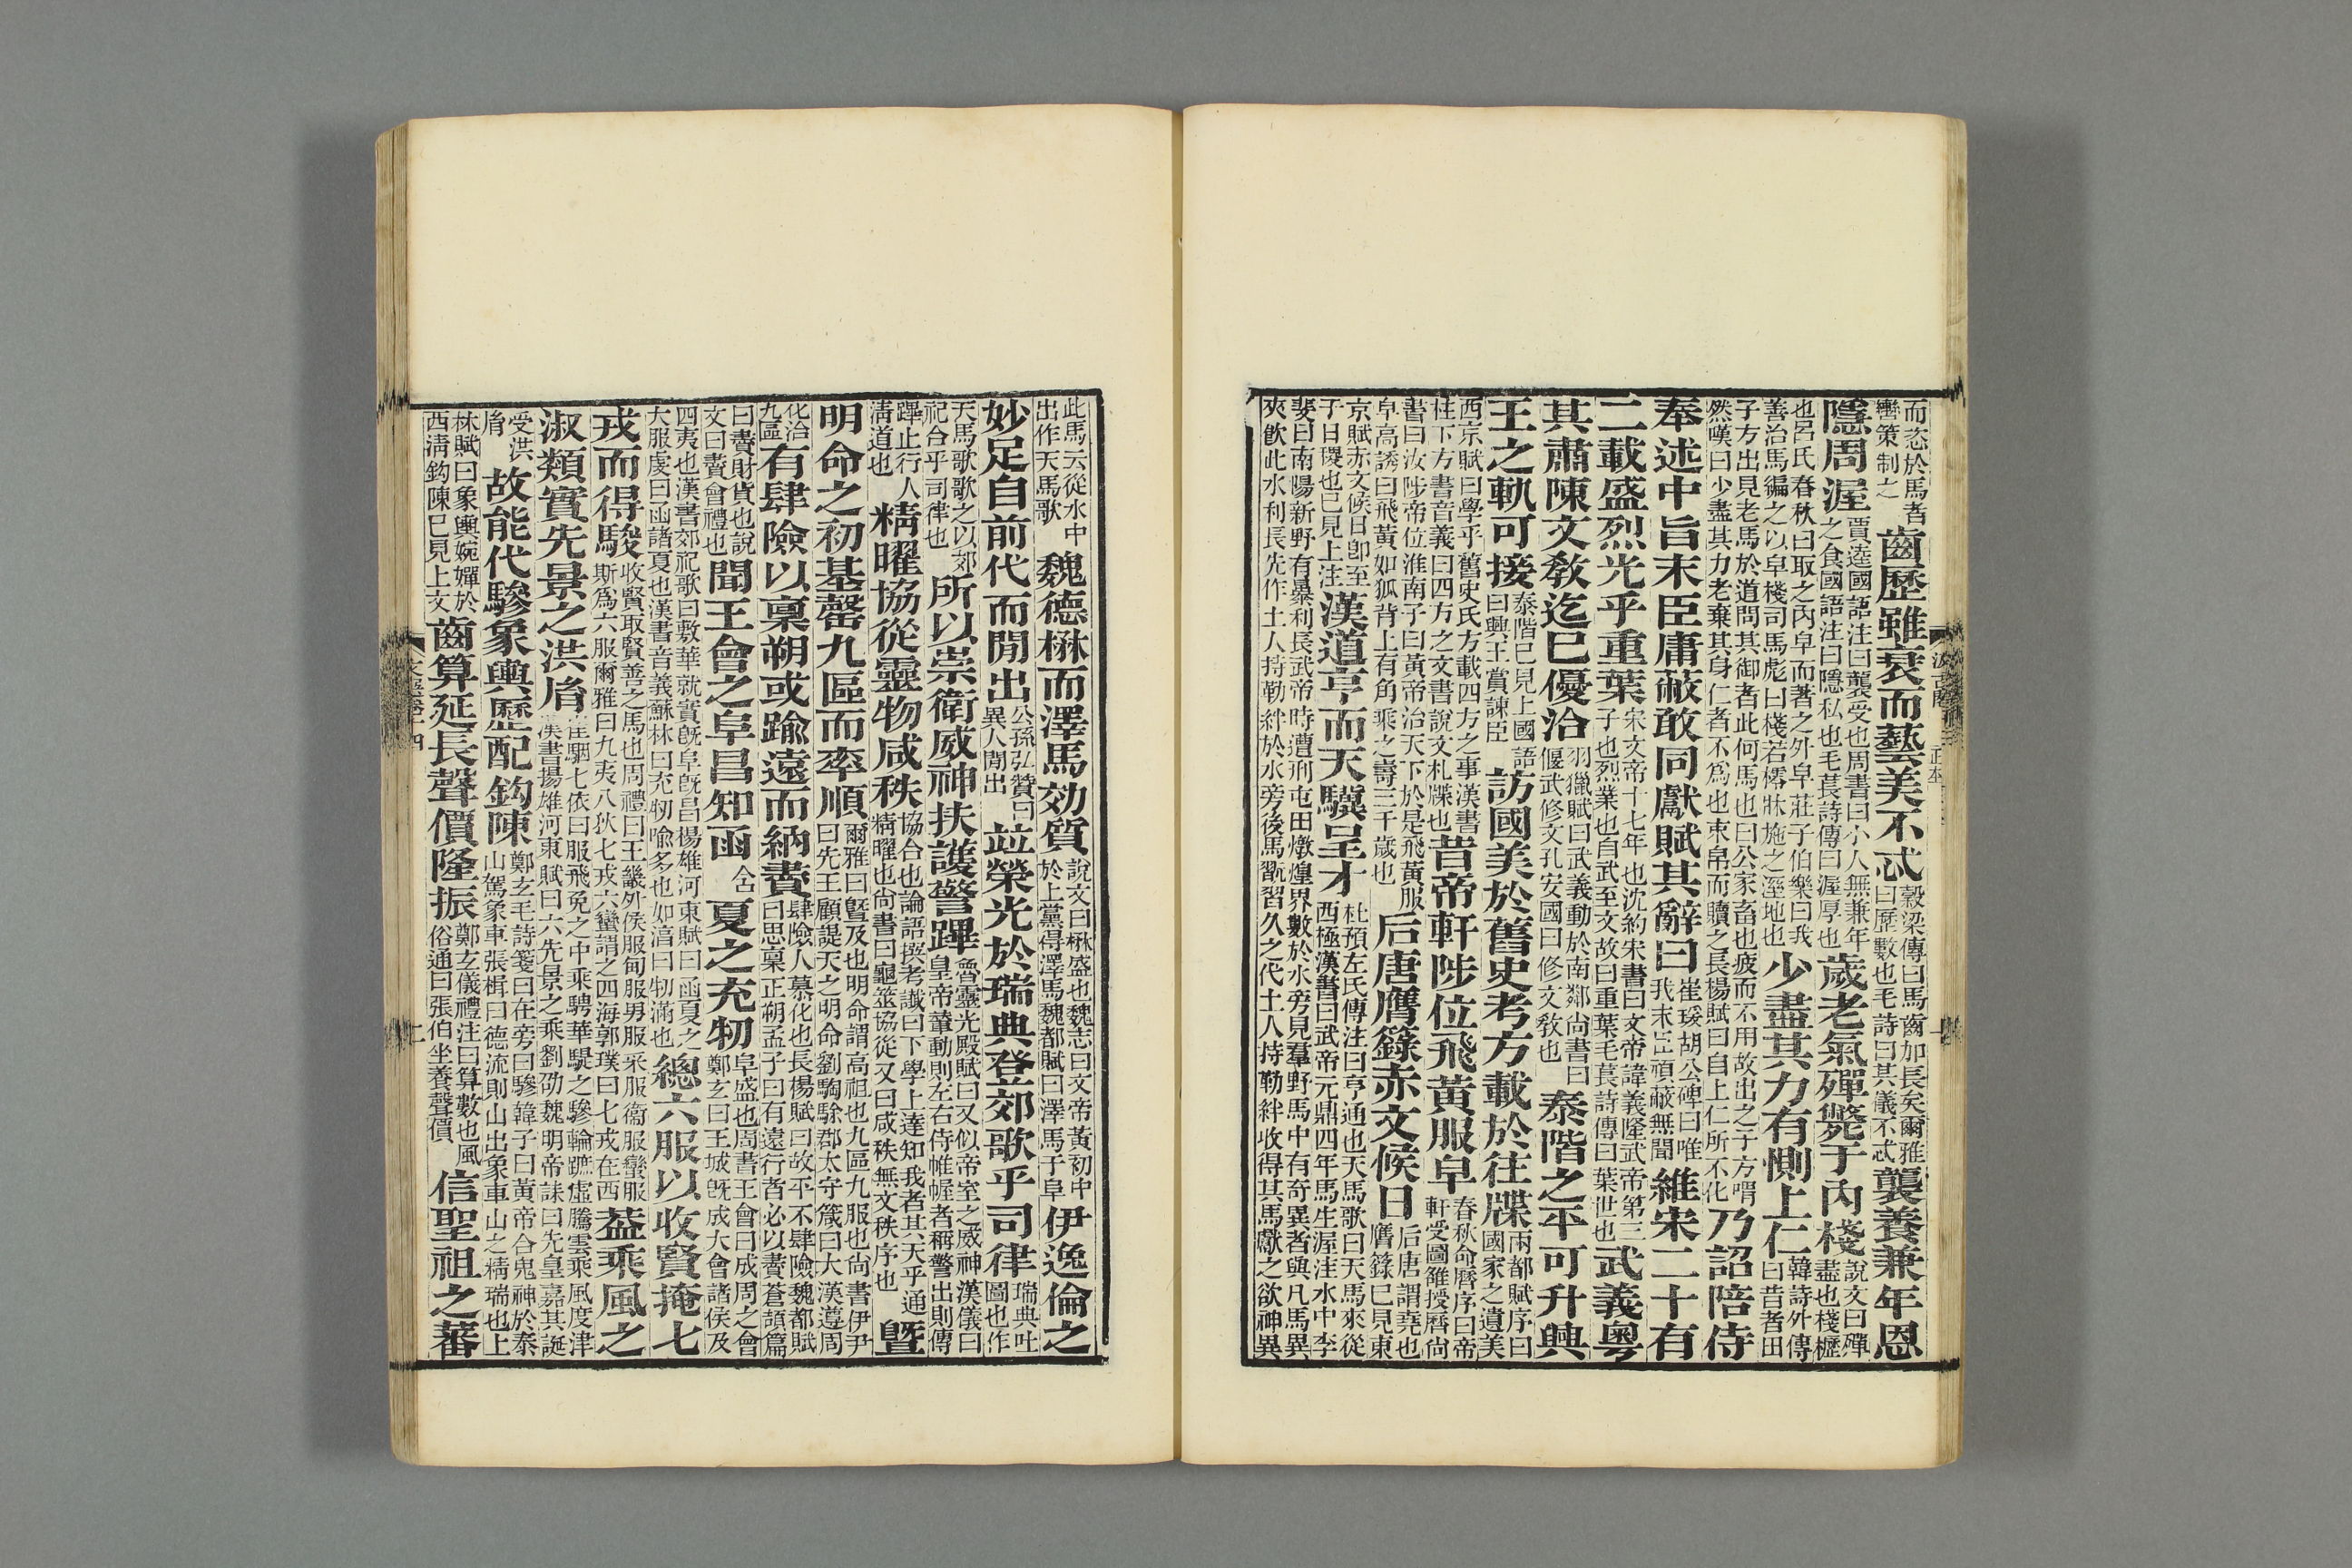 而恣於馬者
轡策制之
齒歷雖衰而藝美不忒
穀梁傳曰馬齒加長矣爾雅
曰歷數也毛詩曰其儀不忒
襲養兼年恩
隱周渥
賈逵國語注曰襲受也周書曰小人無兼年
之食國語注曰隱私也毛萇詩傳曰渥厚也
歲老氣殫斃于內棧
說文曰殫
盡也棧櫪
也呂氏春秋曰取之內皁而著之外皁莊子伯樂曰我
善治馬編之以皁棧司馬彪曰棧若櫺牀施之溼地也
少盡其力有惻上仁
韓詩外傳
曰昔者田
子方出見老馬於道問其御者此何馬也曰公家畜也疲而不用故出之子方喟
然嘆曰少盡其力老棄其身仁者不爲也束帛而贖之長楊賦曰自上仁所不化
乃詔陪侍
奉述中旨末臣庸蔽敢同獻賦其辭曰
崔瑗胡公碑曰唯
我末臣頑蔽無聞
維宋二十有
二載盛烈光乎重葉
宋文帝十七年也沈約宋書曰文帝諱義隆武帝第三
子也烈業也自武至文故曰重葉毛萇詩傳曰葉世也
武義粵
其肅陳文敎迄已優洽
羽獵賦曰武義動於南鄰尚書曰
偃武修文孔安國曰修文敎也
泰階之平可升興
王之軌可接
泰階已見上國語
曰興王賞諫臣
訪國美於舊史考方載於往牒
兩都賦序曰
國家之遺美
西京賦曰學乎舊史氏方載四方之事漢書
柱下方書音義曰四方之文書說文札牒也
昔帝軒陟位飛黃服皁
春秋命曆序曰帝
軒受圖雒授曆尚
書曰汝陟帝位淮南子曰黃帝治天下於是飛黃服
皁高誘曰飛黃如狐背上有角乘之壽三千歲也
后唐膺籙赤文候日
后唐謂堯也
膺籙已見東
京賦赤文候日卽至
于日稷也已見上注
漢道亨而天驥呈才
杜預左氏傳注曰亨通也天馬歌曰天馬來從
西極漢書曰武帝元鼎四年馬生渥洼水中李
斐曰南陽新野有暴利長武帝時遭刑屯田燉煌界數於水旁見羣野馬中有奇異者與凡馬異
來飮此水利長先作土人持勒絆於水旁後馬翫習久之代土人持勒絆收得其馬獻之欲神異
此馬云從水中
出作天馬歌
魏德楙而澤馬効質
說文曰楙盛也魏志曰文帝黃初中
於上黨得澤馬魏都賦曰澤馬于阜
伊逸倫之
妙足自前代而閒出
公孫弘贊曰
異人閒出
竝榮光於瑞典登郊歌乎司律
瑞典吐
圖也作
天馬歌歌之以郊
祀合乎司律也
所以崇衛威神扶護警蹕
魯靈光殿賦曰又似帝室之威神漢儀曰
皇帝輦動則左右侍帷幄者稱警出則傳
蹕止行人
清道也
精曜協從靈物咸秩
協合也論語撰考讖曰下學上達知我者其天乎通
精曜也尚書曰龜筮協從又曰咸秩無文秩序也
曁
明命之初基罄九區而率順
爾雅曰曁及也明命謂高祖也九區九服也尚書伊尹
曰先王顧諟天之明命劉騊駼郡太守箴曰大漢遵周
化洽
九區
有肆險以稟朔或踰遠而納賮
肆險人慕化也長楊賦曰故平不肆險魏都賦
曰思稟正朔孟子曰有遠行者必以賮蒼頡篇
曰賮財貨也說
文曰賮會禮也
聞王會之阜昌知函
含
夏之充牣
阜盛也周書王會曰成周之會
鄭玄曰王城旣成大會諸侯及
四夷也漢書郊祀歌曰敷華就實旣阜旣昌楊雄河東賦曰函夏之
大服虔曰函諸夏也漢書音義蘇林曰充牣喻多也如淳曰牣滿也
總六服以收賢掩七
戎而得駿
收賢取賢善之馬也周禮曰王畿外侯服甸服男服采服衞服蠻服
斯爲六服爾雅曰九夷八狄七戎六蠻謂之四海郭璞曰七戎在西
葢乘風之
淑類實先景之洪胤
崔駰七依曰服飛兔之中乘騁華騠之驂輪蹠虛騰雲乘風度津
漢書揚雄河東賦曰六先景之乘劉劭魏明帝誄曰先皇嘉其誕
受洪
胤
故能代驂象輿歷配鈎陳
鄭玄毛詩箋曰在旁曰驂韓子曰黃帝合鬼神於泰
山駕象車張楫曰德流則山出象車山之精瑞也上
林賦曰象輿婉嬋於
西淸鈎陳已見上文
齒算延長聲價隆振
鄭玄儀禮注曰算數也風
俗通曰張伯坐養聲價
信聖祖之蕃